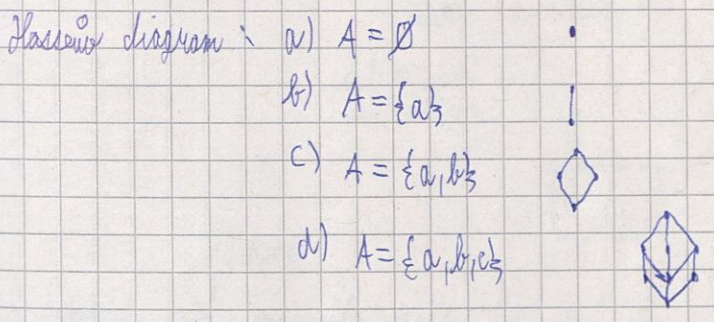 Hasseův diagram : a) A = ∅
b) A = {a}
c) A = {a,b}
d) A = {a,b,c}